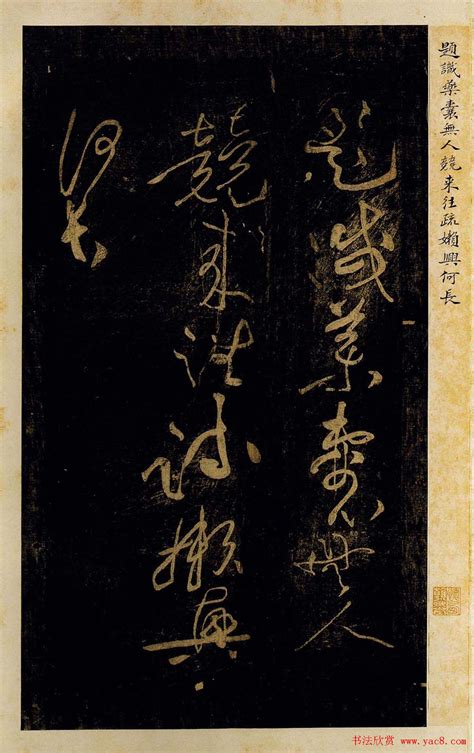 題識藥囊無人競來往疏嬾興何長
題識藥囊無人
競来往疏嬾興
何長
书法欣赏 www.yac8.com